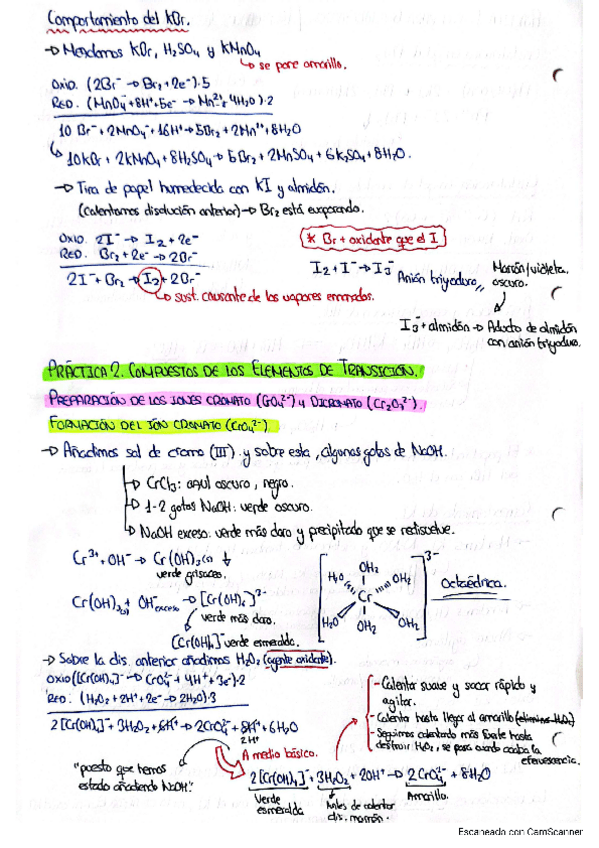 Comportamiento del KBr.
→ Mezclamos KBr, H₂SO₄ y KMnO₄
↳ se pone amarillo.
Oxid. (2Br⁻ → Br₂ + 2e⁻)·5
Red. (MnO₄⁻ + 8H⁺ + 5e⁻ → Mn²⁺ + 4H₂O)·2
10 Br⁻ + 2MnO₄⁻ + 16H⁺ → 5Br₂ + 2Mn²⁺ + 8H₂O
↳ 10KBr + 2KMnO₄ + 8H₂SO₄ → 5Br₂ + 2MnSO₄ + 6K₂SO₄ + 8H₂O.
→ Tira de papel humedecida con KI y almidón.
(calentamos disolución anterior) → Br₂ está evaporando.
Oxid. 2I⁻ → I₂ + 2e⁻
* Br + oxidante que el I
Red. Br₂ + 2e⁻ → 2Br⁻
2I⁻ + Br₂ → I₂ + 2Br⁻
I₂ + I⁻ → I₃⁻ Anión triyoduro,,
Marrón/violeta oscuro.
↳ sust. causante de los vapores
I₃⁻ + almidón → Aducto de almidón con anión triyoduro.
PRÁCTICA 2. COMPUESTOS DE LOS ELEMENTOS DE TRANSICIÓN.
PREPARACIÓN DE LOS IONES CROMATO (CrO₄²⁻) y DICROMATO (Cr₂O₇²⁻).
FORMACIÓN DEL IÓN CROMATO (CrO₄²⁻)
→ Añadimos sal de cromo (III) y sobre esta, algunas gotas de NaOH.
↳ CrCl₃: azul oscuro, negro.
↳ 1-2 gotas NaOH: verde oscuro.
↳ NaOH exceso: verde más claro y precipitado que se redisuelve.
Cr³⁺ + OH⁻ → Cr(OH)₃(s) ↓
verde grisáceo.
3-
OH₂
H₂O OH₂
Cr
H₂O OH₂
OH₂
Octaédrica.
Cr(OH)₃(s) + OH⁻ exceso → [Cr(OH)₆]³⁻
verde más claro.
[Cr(OH)₄]⁻ verde esmeralda.
→ Sobre la dis. anterior añadimos H₂O₂ (agente oxidante).
Oxid ([Cr(OH)₄]⁻ → CrO₄²⁻ + 4H⁺ + 3e⁻)·2
Red: (H₂O₂ + 2H⁺ + 2e⁻ → 2H₂O)·3
2[Cr(OH)₄]⁻ + 3H₂O₂ + 6H⁺ → 2CrO₄²⁻ + 8H⁺ + 6H₂O
2H⁺
- Calentar suave y sacar rápido y agitar.
- Calienta hasta llegar al amarillo (elimina H₂O₂)
- Seguimos calentando más fuerte hasta destruir H₂O₂, se pasa cuando acaba la efervescencia.
A medio básico.
"puesto que hemos
estado añadiendo NaOH".
2[Cr(OH)₄]⁻ + 3H₂O₂ + 2OH⁻ → 2CrO₄²⁻ + 8H₂O
Verde esmeralda
Antes de calentar dis. marrón.
Amarillo.
Escaneado con CamScanner